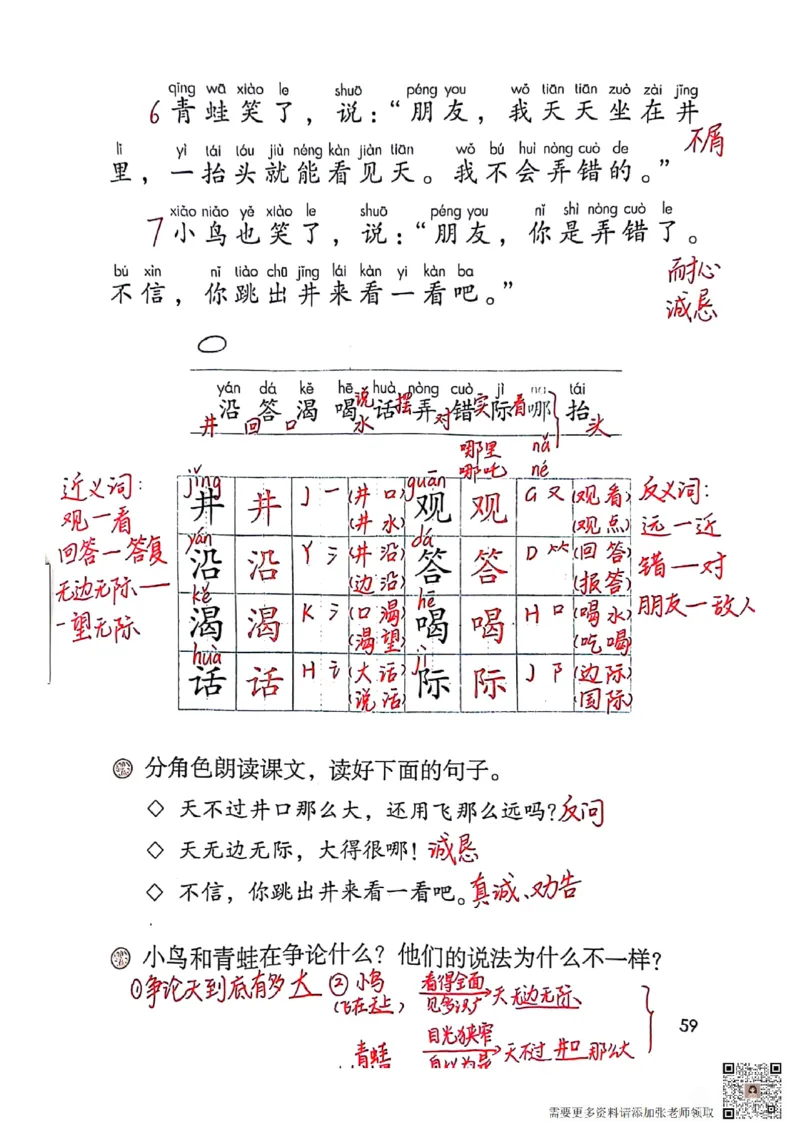 qīng wā xiào le shuō péng you wǒ tiān tiān zuò zài jǐng
6 青蛙笑了，说：“朋友，我天天坐在井
不屑
lǐ yì tái tóu jiù néng kàn jiàn tiān wǒ bú huì nòng cuò de
里，一抬头就能看见天。我不会弄错的。”
xiǎo niǎo yě xiào le shuō péng you nǐ shì nòng cuò le
7 小鸟也笑了，说：“朋友，你是弄错了。
耐心
bú xìn nǐ tiào chū jǐng lái kàn yi kàn ba
不信，你跳出井来看一看吧。”
诚恳
yán dá kě hē huà nòng cuò jì tái
沿 答 渴 喝 话 弄 错 际 哪 抬
井 回 口 水 说 摆 对 实 看 头
哪里 nǎ
哪吒 né
近义词：
观—看
回答—答复
无边无际—
一望无际
jǐng guān
井 井 J 一 (井口) 观 观 G 又 (观看)
(井水) (观点)
yán dá
沿 沿 Y 氵 (井沿) 答 答 D ⺮ (回答)
(边沿) (报答)
kě hē
渴 渴 K 氵 (口渴) 喝 喝 H 口 (喝水)
(渴望) (吃喝)
huà jì
话 话 H 讠 (大话) 际 际 J 阝 (边际)
(说话) (国际)
反义词：
远—近
错—对
朋友—敌人
分角色朗读课文，读好下面的句子。
◇ 天不过井口那么大，还用飞那么远吗？反问
◇ 天无边无际，大得很哪！诚恳
◇ 不信，你跳出井来看一看吧。真诚、劝告
小鸟和青蛙在争论什么？他们的说法为什么不一样？
①争论天到底有多大 ②小鸟 看得全面
(飞在天上) 见多识广 天无边无际
目光狭窄
青蛙 自以为是 天不过井口那么大
59
需要更多资料请添加张老师领取